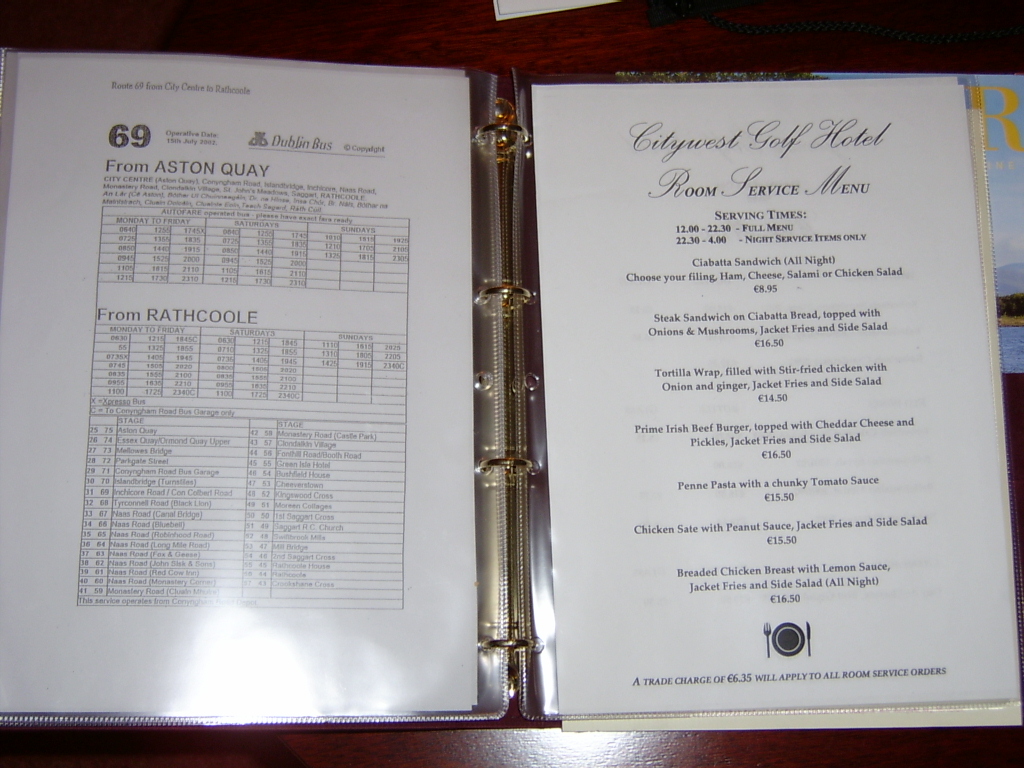 Route 69 from City Centre to Rathcoole
69 Operative Date: Dublin Bus © Copyright
15th July 2002.
From ASTON QUAY
CITY CENTRE (Aston Quay), Conyngham Road, Islandbridge, Inchicore, Naas Road,
Monastery Road, Clondalkin Village, St. John's Meadows, Saggart, RATHCOOLE.
AUTOFARE operated bus - please have exact fare ready
MONDAY TO FRIDAY SATURDAYS SUNDAYS
0640 1255 1745X 0640 1255 1745 1010 1615 1925
0725 1355 1835 0725 1355 1835 1210 1705 2105
0850 1440 1915 0850 1440 1915 1325 1815 2305
0945 1525 2000 0945 1525 2000
1105 1615 2110 1105 1615 2110
1215 1730 2310 1215 1730 2310
From RATHCOOLE
MONDAY TO FRIDAY SATURDAYS SUNDAYS
0630 1215 1845C 0630 1215 1845 1110 1615 2025
55 1325 1855 0710 1325 1855 1310 1805 2205
0735X 1405 1945 0735 1405 1945 1425 1915 2340C
0745 1505 2020 0800 1505 2020
0835 1555 2100 0835 1555 2100
0955 1635 2210 0955 1635 2210
1100 1725 2340C 1100 1725 2340C
X =Xpresso Bus
C = To Conyngham Road Bus Garage only
STAGE STAGE
25 75 Aston Quay 42 58 Monastery Road (Castle Park)
26 74 Essex Quay/Ormond Quay Upper 43 57 Clondalkin Village
27 73 Mellowes Bridge 44 56 Fonthill Road/Booth Road
28 72 Parkgate Street 45 55 Green Isle Hotel
29 71 Conyngham Road Bus Garage 46 54 Bushfield House
30 70 Islandbridge (Turnstiles) 47 53 Cheeverstown
31 69 Inchicore Road / Con Colbert Road 48 52 Kingswood Cross
32 68 Tyrconnell Road (Black Lion) 49 51 Moreen Collages
33 67 Naas Road (Canal Bridge) 50 50 1st Saggart Cross
34 66 Naas Road (Bluebell) 51 49 Saggart R.C. Church
35 65 Naas Road (Robinhood Road) 52 48 Swiftbrook Mills
36 64 Naas Road (Long Mile Road) 53 47 Mill Bridge
37 63 Naas Road (Fox & Geese) 54 46 2nd Saggart Cross
38 62 Naas Road (John Sisk & Sons) 55 45 Rathcoole House
39 61 Naas Road (Red Cow Inn) 56 44 Rathcoole
40 60 Naas Road (Monastery Corner) 57 43 Crookshane Cross
41 59 Monastery Road (Cluain Mhuire)
This service operates from Conyngham
Citywest Golf Hotel
Room Service Menu
SERVING TIMES:
12.00 - 22.30 - FULL MENU
22.30 - 4.00 - NIGHT SERVICE ITEMS ONLY
Ciabatta Sandwich (All Night)
Choose your filing, Ham, Cheese, Salami or Chicken Salad
€8.95
Steak Sandwich on Ciabatta Bread, topped with
Onions & Mushrooms, Jacket Fries and Side Salad
€16.50
Tortilla Wrap, filled with Stir-fried chicken with
Onion and ginger, Jacket Fries and Side Salad
€14.50
Prime Irish Beef Burger, topped with Cheddar Cheese and
Pickles, Jacket Fries and Side Salad
€16.50
Penne Pasta with a chunky Tomato Sauce
€15.50
Chicken Sate with Peanut Sauce, Jacket Fries and Side Salad
€15.50
Breaded Chicken Breast with Lemon Sauce,
Jacket Fries and Side Salad (All Night)
€16.50
A TRADE CHARGE OF €6.35 WILL APPLY TO ALL ROOM SERVICE ORDERS
R